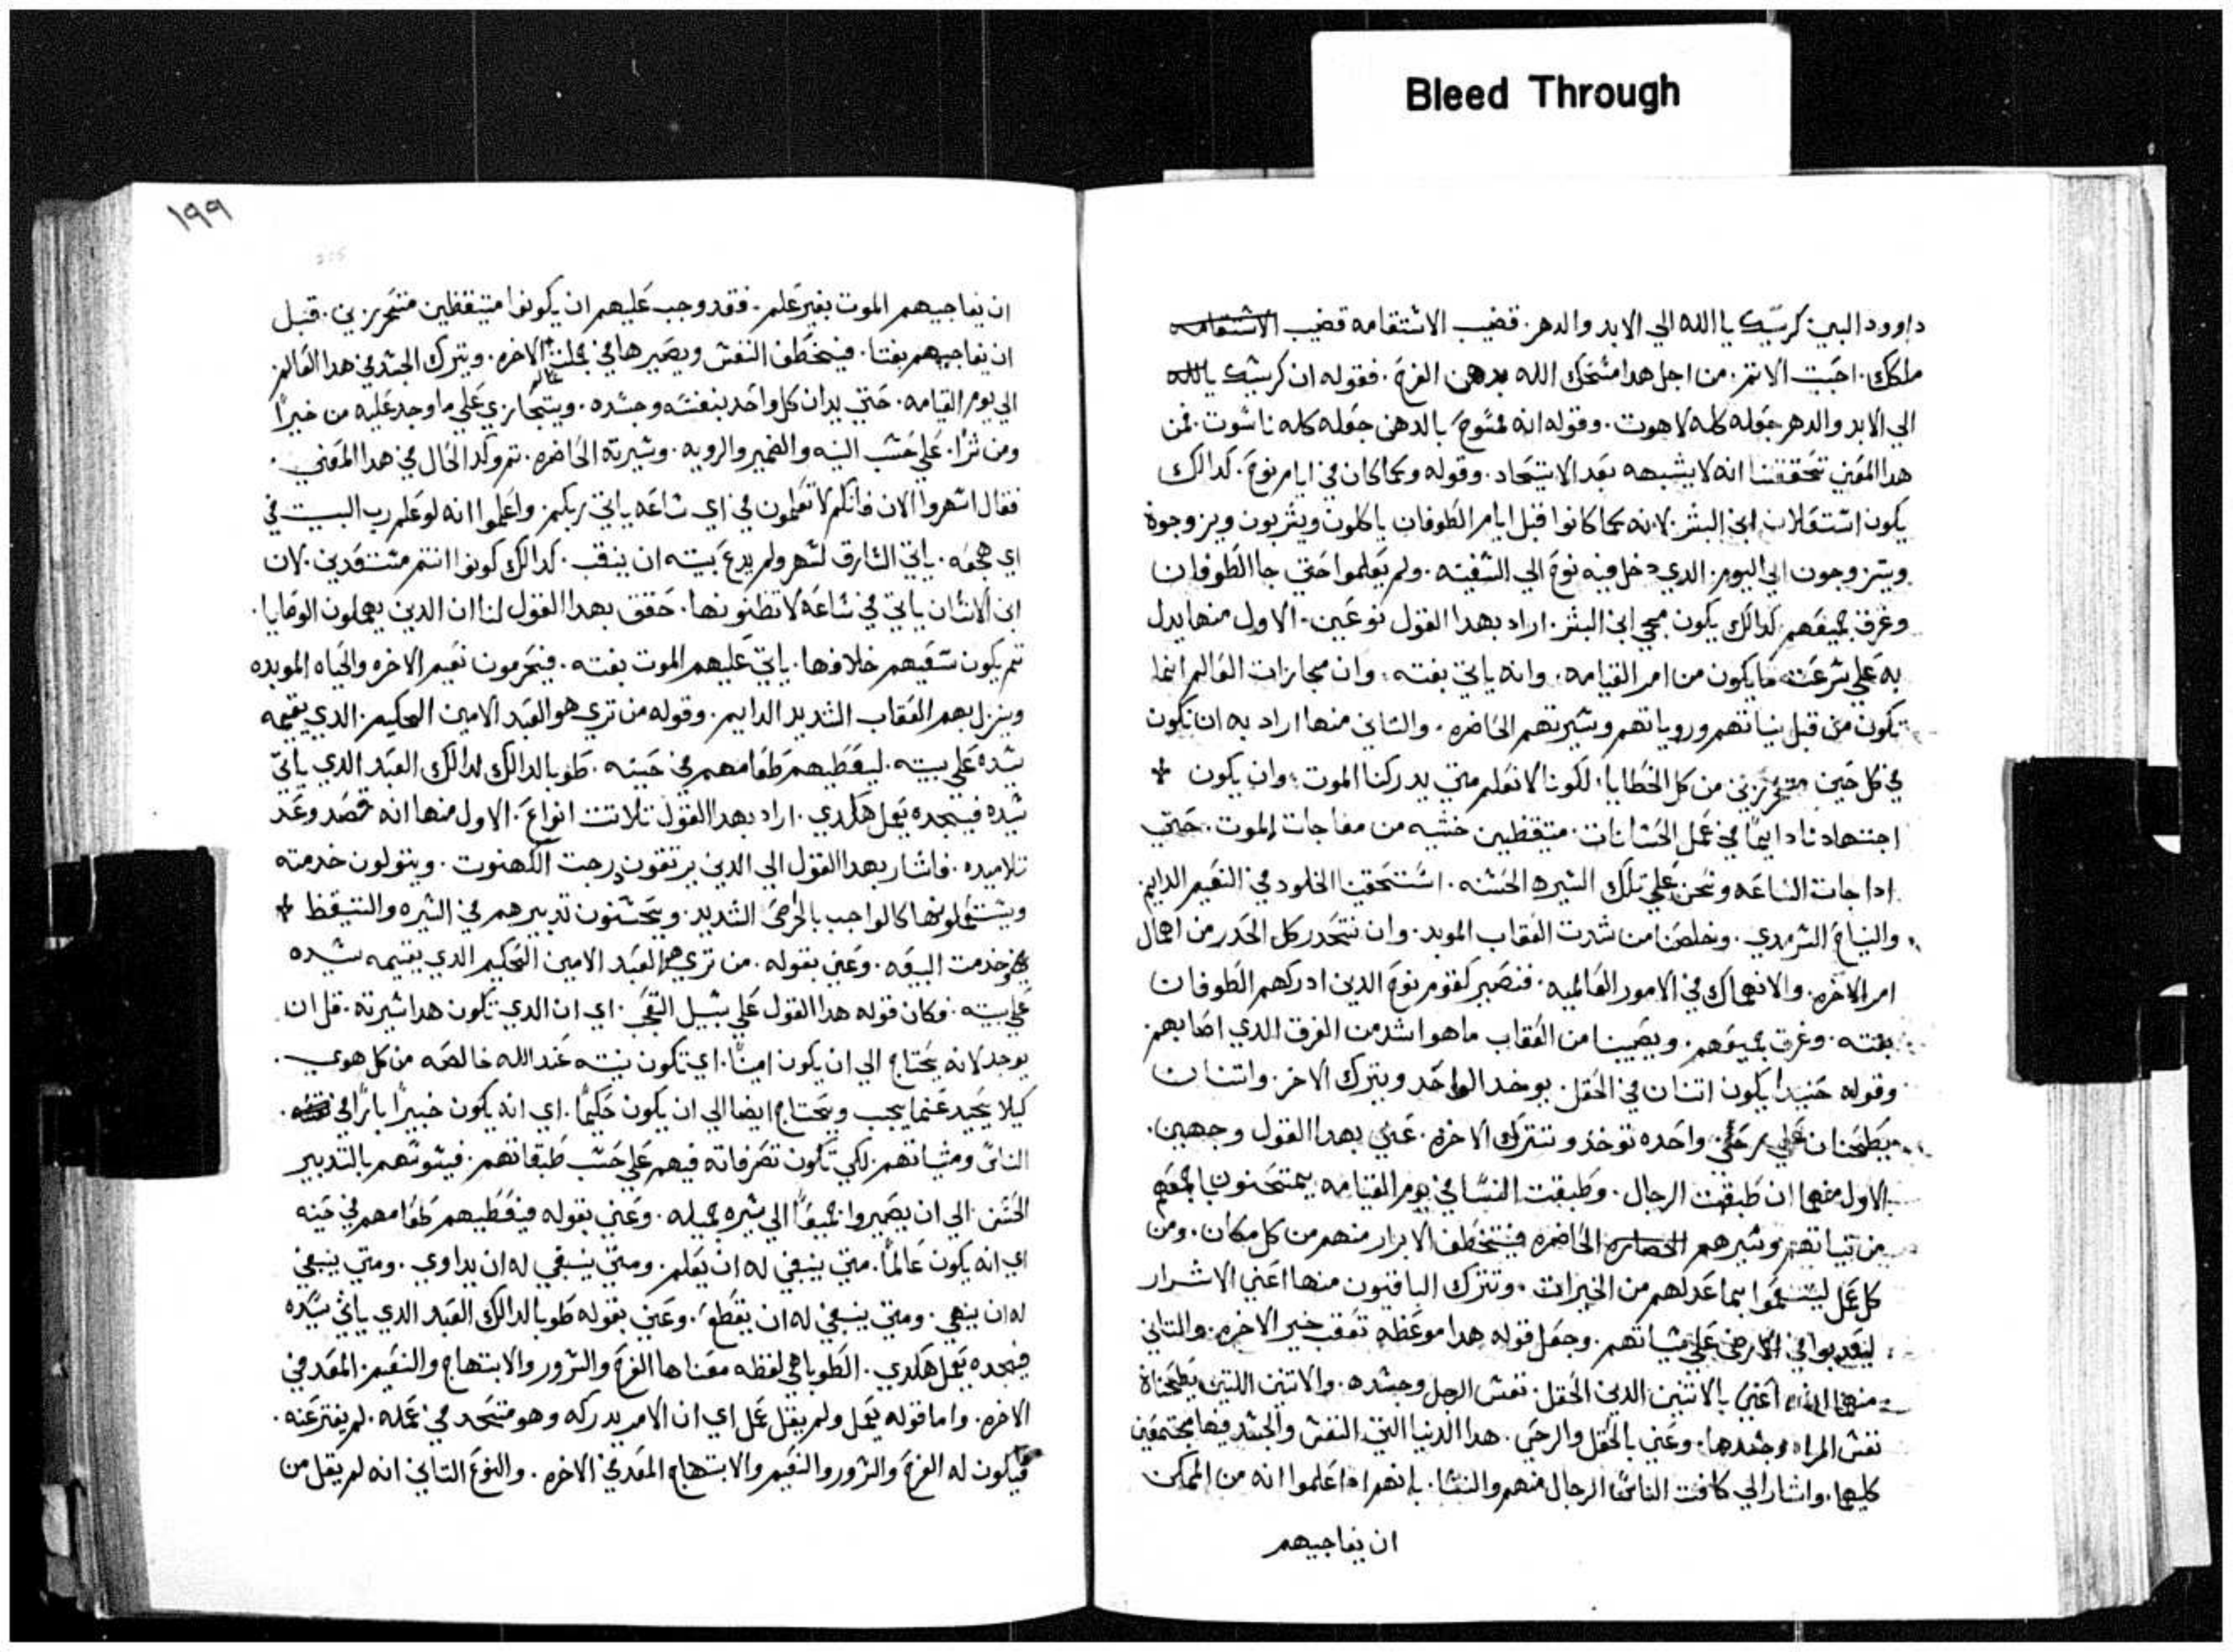 Bleed Through
داوود النبي كرسيك يا الله الي الابد والدهر. قضيب الاستقامه قضيب الاستقامه
ملكك. احببت الاتم. من اجل هدا مسحك الله بدهن الفرح. فقوله ان كرسيك يا الله
الي الابد والدهر جعله كله لاهوت. وقوله انه ممسوح بالدهن جعله كله ناسوت. فمن
هدا المعني تحققنا انه لا يشبهه بعد الاتيحاد. وقوله وكما كان في ايام نوح. كدالك
يكون استعلان ابن البشر. لانه كما كانوا قبل ايام الطوفان ياكلون ويشربون ويزوجوة
ويتزوجون الي اليوم. الدي دخل فيه نوح الي السفينه. ولم يعلموا حتي جا الطوفان
وغرق جميعهم كدالك يكون مجي ابن البشر. اراد بهدا القول نوعين. الاول منها يدل
به علي سرعت ما يكون من امر القيامه. وانه ياتي بغته. وان مجازات العالم انما
تكون من قبل نياتهم وروياتهم وسيرتهم الحاضره. والتاني منها اراد به ان نكون
في كل حين متحرزين من كل الخطايا. لكوننا لا نعلم متي يدركنا الموت. وان يكون
اجتهادنا دايمًا في عمل الحسنات. متيقظين خشيه من مفاجات الموت. حتي
ادا جات الساعه ونحن علي تلك السيره الحسنه. استحقينا الخلود في النعيم الدايم.
والنياح السرمدي. ونخلصنا من شدت العقاب الموبد. وان نتحدر كل الحدر من اهمال
امر الاخره. والانهماك في الامور العالميه. فنصير كقوم نوح الدين ادركهم الطوفان
بغته. وغرق جميعهم. ويصيبنا من العقاب ما هو اشد من الغرق الدي اصابهم
وقوله حنيدًا يكون اتنان في الحقل. يوخد الواحد ويترك الاخر. واتنتان
يطحنان علي رحي. واحده توخد وتترك الاخره. عني بهدا القول وجهين.
الاول منهما ان طبقت الرجال. وطبقت النسا في يوم القيامه يمتحنون باجمعهم
من نياتهم وسيرهم الحصاره الحاضره فتختطف الابرار منهم من كل مكان. ومن
كل عمل ليتنعموا بما عد لهم من الخيرات. وتترك الباقيون منها اعني الاشرار
ليعدبوا في الارض علي سياتهم. وجعل قوله هدا موعظه تعقب خير الاخره. والتاني
منهما انه اعني بالاتنين الدين الحقل. نفس الرجل وجسده. والاتنين اللتين يطحناة
نفس المراه وجسدها. وعني بالحقل والرحي. هدا الدنيا التي النفس والجسد فيها مجتمعين
كليهما. واشار الي كافت الناس الرجال منهم والنسا. بانهم ادا علموا انه من الممكن
ان يفاجيهم
١٩٩
ان يفاجيهم الموت بغير علم. فقد وجب عليهم ان يكونوا متيقظين متحرزين. قبل
ان يفاجيهم بغتا. فيختطف النفس ويصيرها في محلت عالم الاخره. ويترك الجسد في هدا العالم
الي يوم القيامه. حتي يدان كل واحد بنفسه وجسده. ويتجازي علي ما وجد عليه من خيرًا
ومن شرًا. علي حسب النيه والضمير والرويه. وسيرته الحاضره. تم وكد الحال في هدا المعني.
فقال اسهروا الان فانكم لا تعلمون في اي ساعه ياتي ربكم. واعلموا انه لو علم رب البيت في
اي هجعه. ياتي السارق لسهر ولم يدع بيته ان ينقب. كدالك كونوا انتم مستعدين. لان
ابن الانسان ياتي في ساعه لا تظنونها. حقق بهدا القول لنا ان الدين يهملون الوصايا.
تم يكون سعيهم خلافها. ياتي عليهم الموت بغته. فيحرمون نعيم الاخره والحياه الموبده
وينزل بهم العقاب الشديد الدايم. وقوله من تري هو العبد الامين الحكيم. الدي يقيمه
سيده علي بيته. ليعطيهم طعامهم في حينه. طوبا لدالك لدالك العبد الدي ياتي
سيده فيجده يعمل هكدي. اراد بهدا القول تلاتت انواع. الاول منها انه قصد وعد
تلاميده. فاشار بهدا القول الي الدين يرتقون درجت الكهنوت. ويتولون خدمته
ويستعملونها كالواجب بالحرص الشديد. ويحسنون تدبيرهم في السيره والتيقظ
في خدمت البيعه. وعني بقوله. من تري هو العبد الامين الحكيم الدي يقيمه سيده
علي بيته. فكان قوله هدا القول علي سبيل التعجب. اي ان الدي تكون هدا سيرته. قل ان
يوجد لانه يحتاج الي ان يكون امينًا. اي تكون نيته عند الله خالصه من كل هوي.
كيلا يحيد عنما يجب ويحتاج ايضا الي ان يكون حكيمًا. اي انه يكون خبيرًا بارًا في
الناس ومشياتهم. لكي تكون تصرفاته فيهم علي حسب طبقاتهم. فيسوسهم بالتدبير
الحسن. الي ان يصيروا جميعًا الي سيره جميله. وعني بقوله فيعطيهم طعامهم في حينه
اي انه يكون عالمًا. متي ينبغي له ان يعلم. ومتي ينبغي له ان يداوي. ومتي ينبغي
له ان ينهي. ومتي ينبغي له ان يقطع. وعني بقوله طوبا لدالك العبد الدي ياتي سيده
فيجده يعمل هكدي. الطوبا هي لفظه معناها الفرح والسرور والابتهاج والنعيم. المعد في
الاخره. واما قوله يعمل ولم يقل عمل اي ان الامر يدركه وهو متحد في عمله. لم يفتر عنه.
فيكون له الفرح والسرور والنعيم والابتهاج المعد في الاخره. والنوع التاني انه لم يقل من